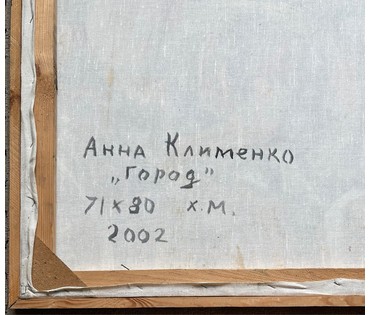 Анна Клименко
„город"
71 x 80 х.м.
2002